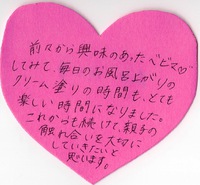 前々から興味のあったベビマ♡
してみて、毎日のお風呂上がりの
クリーム塗りの時間も、とても
楽しい時間になりました。
これからも続けて、親子の
触れ合いを大切に
していきたいと
思います。